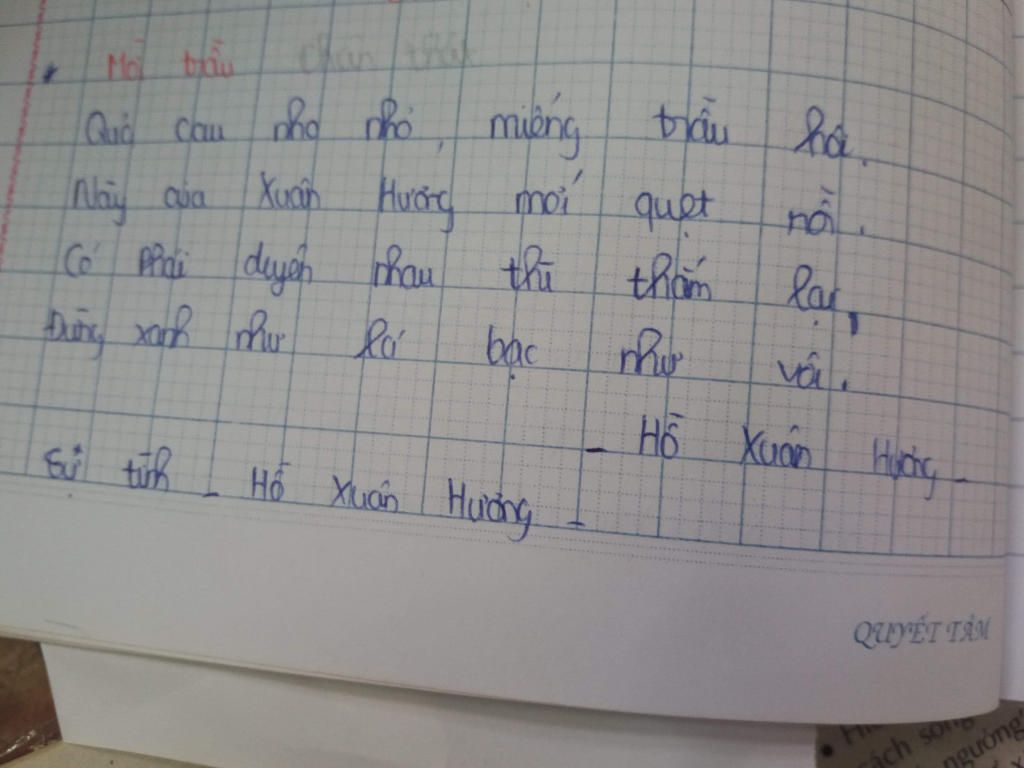 Mời trầu chân thật
Quả cau nho nhỏ, miếng trầu hôi.
Này của Xuân Hương mới quẹt rồi.
Có phải duyên nhau thì thắm lại,
Đừng xanh như lá bạc như vôi.
- Hồ Xuân Hương -
Sự tình - Hồ Xuân Hương -
QUYẾT TÂM
ách sống
ngưỡng